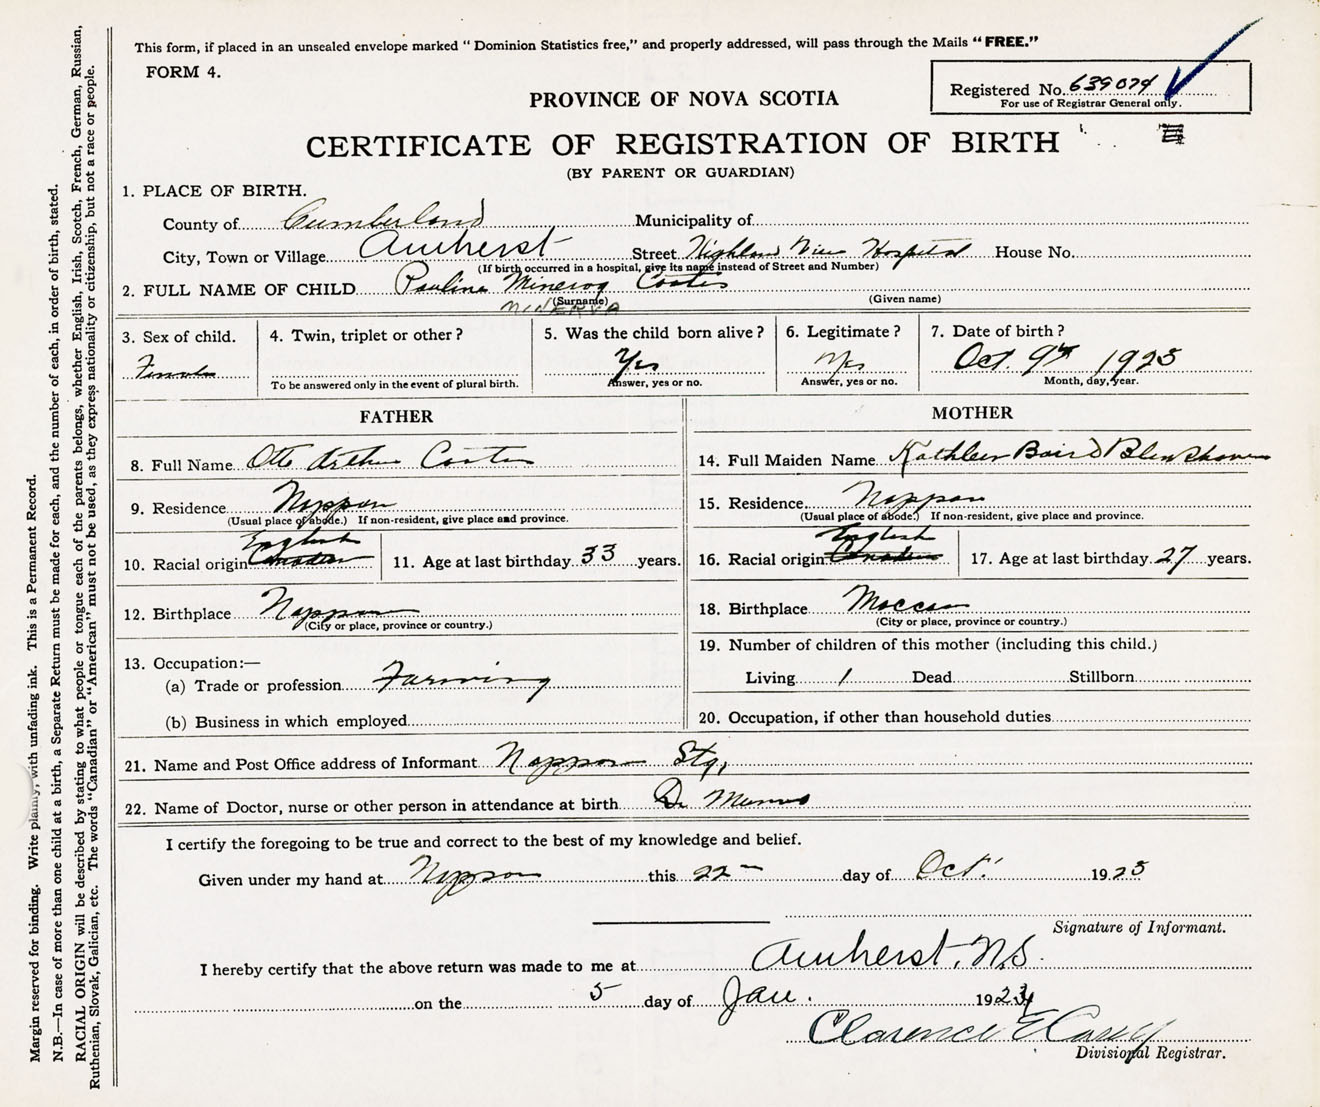 This form, if placed in an unsealed envelope marked “ Dominion Statistics free,” and properly addressed, will pass through the Mails “ FREE.”
FORM 4.
Registered No. 639074
For use of Registrar General only.
PROVINCE OF NOVA SCOTIA
CERTIFICATE OF REGISTRATION OF BIRTH
(BY PARENT OR GUARDIAN)
1. PLACE OF BIRTH.
County of Cumberland Municipality of
City, Town or Village Amherst Street Highland View Hospital House No.
(If birth occurred in a hospital, give its name instead of Street and Number)
2. FULL NAME OF CHILD Pauline Coates
(Surname) (Given name)
MINERVA
3. Sex of child. 4. Twin, triplet or other ? 5. Was the child born alive ? 6. Legitimate ? 7. Date of birth ?
Female Yes Yes Oct. 9th 1923
To be answered only in the event of plural birth. Answer, yes or no. Answer, yes or no. Month, day, year.
FATHER MOTHER
8. Full Name Otto Arthur Coates 14. Full Maiden Name Kathleen Baird
9. Residence Nappan 15. Residence Nappan
(Usual place of abode.) If non-resident, give place and province. (Usual place of abode.) If non-resident, give place and province.
English English
10. Racial origin Canadian 11. Age at last birthday 33 years. 16. Racial origin Canadian 17. Age at last birthday 27 years.
12. Birthplace Nappan 18. Birthplace Maccan
(City or place, province or country.) (City or place, province or country.)
13. Occupation:— 19. Number of children of this mother (including this child.)
(a) Trade or profession Farming Living 1 Dead Stillborn
(b) Business in which employed 20. Occupation, if other than household duties
21. Name and Post Office address of Informant Nappan Stq,
22. Name of Doctor, nurse or other person in attendance at birth Dr
I certify the foregoing to be true and correct to the best of my knowledge and belief.
Given under my hand at Nappan this 22 day of Oct. 1923
Signature of Informant.
I hereby certify that the above return was made to me at Amherst, N.S.
on the 5 day of Jan. 192
Clarence E Casey
Divisional Registrar.
Margin reserved for binding. Write plainly, with unfading ink. This is a Permanent Record.
N.B.—In case of more than one child at a birth, a Separate Return must be made for each, and the number of each, in order of birth, stated.
RACIAL ORIGIN will be described by stating to what people or tongue each of the parents belongs, whether English, Irish, Scotch, French, German, Russian,
Ruthenian, Slovak, Galician, etc. The words “Canadian” or “American” must not be used, as they express nationality or citizenship, but not a race or people.